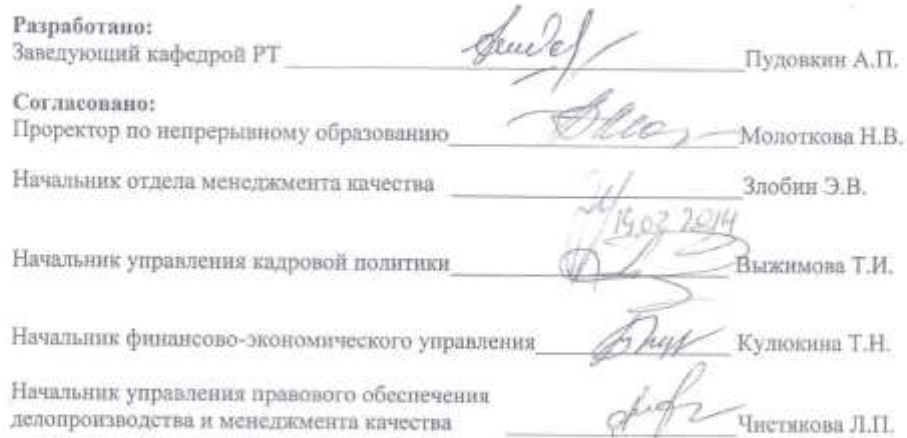 Разработано:
Заведующий кафедрой РТ Пудовкин А.П.
Согласовано:
Проректор по непрерывному образованию Молоткова Н.В.
Начальник отдела менеджмента качества Злобин Э.В.
14.02 2014
Начальник управления кадровой политики Выжимова Т.И.
Начальник финансово-экономического управления Кулюкина Т.Н.
Начальник управления правового обеспечения
делопроизводства и менеджмента качества Чистякова Л.П.